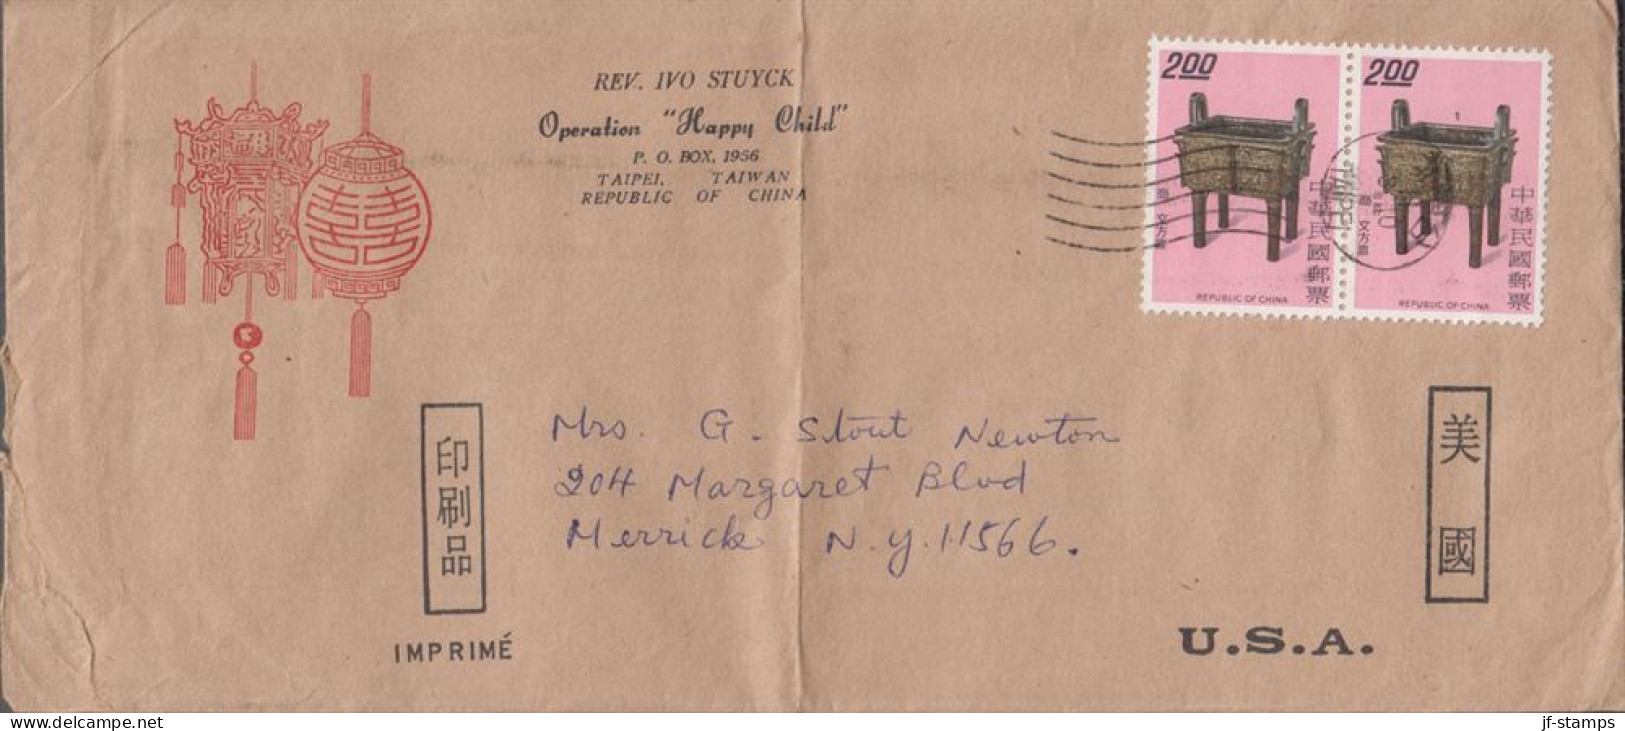 REV. IVO STUYCK
Operation "Happy Child"
P. O. BOX, 1956
TAIPEI, TAIWAN
REPUBLIC OF CHINA
2.00
商 文方鼎
中華民國郵票
REPUBLIC OF CHINA
2.00
商 文方鼎
中華民國郵票
REPUBLIC OF CHINA
印刷品
IMPRIMÉ
Mrs. G. Stout Newton
204 Margaret Blvd
Merrick N.Y. 11566.
美國
U.S.A.
www.delcampe.net
jf-stamps